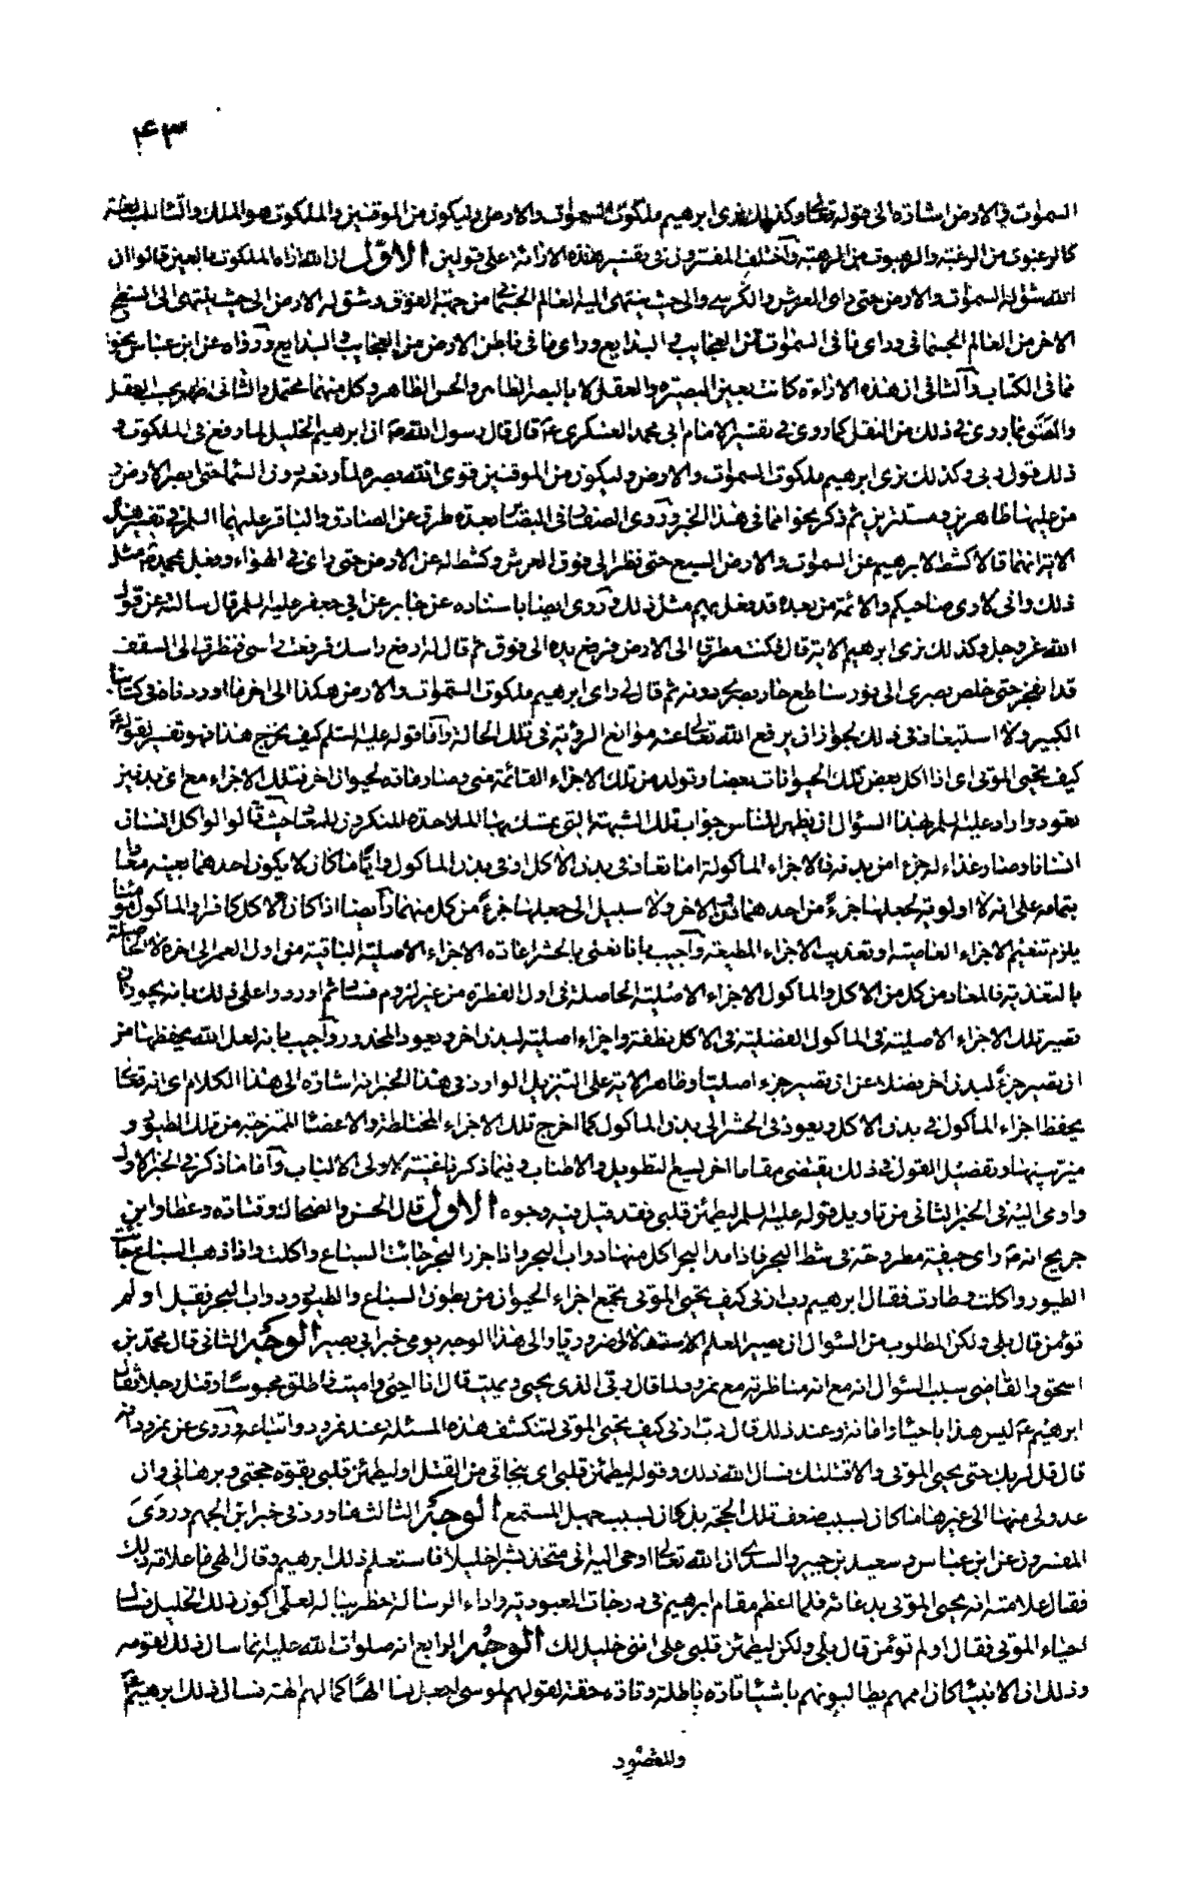 ۴۳
السموات والارض اشارة الى قوله تعالى وكذلك نرى ابرهيم ملكوت السموات والارض وليكون من الموقنين والملكوت هو الملك والتاء للمبالغة
كالرغبوت من الرغبة والرهبوت من الرهبة واختلف المفسرون فى تفسير هذه الارائة على قولين الاول ان الله اراه الملكوت بالعين قالوا ان
الله شق له السموات والارض حتى راى العرش والكرسي والى حيث ينتهى اليه العالم الجسمانى من جهة الفوق وشق له الارض الى حيث ينتهى الى السطح
الاخر من العالم الجسمانى وراى ما فى السموات من العجايب والبدايع وراى ما فى باطن الارض من العجايب والبدايع ورواه عن ابن عباس نحوا
مما فى الكتاب والثانى ان هذه الاراءة كانت بعين البصيرة والعقل لا بالبصر الظاهر والحس الظاهر وكل منهما محتمل والثانى اظهر بحسب العقل
ما روى فى ذلك من النقل كما روى فى تفسير الامام ابى محمد العسكرى ع قال قال رسول الله ص ان ابرهيم الخليل لما رفع فى الملكوت و
ذلك قول ربى وكذلك نرى ابرهيم ملكوت السموات والارض وليكون من الموقنين قوى الله بصره لما رفعه دون السماء حتى ابصر الارض و
من عليها ظاهرين ومستترين ثم ذكر نحوا مما فى هذا الخبر وروى الصفار فى البصائر بعدة طرق عن الصادق والباقر عليهما السلم فى تفسير هذه
الاية انهما قالا كشط لابرهيم عن السموات والارض السبع حتى نظر الى فوق العرش وكشط له عن الارض حتى راى فى الهواء وفعل بمحمد ص مثل
ذلك وانى لارى صاحبكم والائمة من بعده قد فعل بهم مثل ذلك وروى ايضا باسناده عن جابر عن ابى جعفر عليه السلم قال سالته عن قول
الله عز وجل وكذلك نرى ابرهيم الاية قال فكنت مطرقا الى الارض فرفع يده الى فوق ثم قال لى ارفع راسك فرفعت راسى فنظرت الى السقف
قد انفجر حتى خلص بصرى الى نور ساطع حار بصرى دونه ثم قال لى راى ابرهيم ملكوت السموات والارض هكذا الى اخر ما اوردناه فى كتابنا
الكبير ولا استبعاد فى ذلك لجواز ان يرفع الله تعالى عنه موانع الرؤية فى تلك الحالة واما قوله عليه السلم كيف يخرج هذا فهو تفسير لقوله
كيف تحيى الموتى اى اذا اكل بعض تلك الحيوانات بعضا وتولد من تلك الاجزاء الغائمة منى وصار مادة لحيوان اخر فتلك الاجزاء مع اى بدنين
تعود واراد عليه السلم بهذا السؤال ان يظهر للناس جواب تلك الشبهة التى تمسك بها الملاحدة المنكرون للمعاد حيث قالوا لو اكل انسان
انسانا وصار غذاء له جزء من بدنه فالاجزاء الماكولة اما تعاد فى بدن الاكل او فى بدن الماكول وايا ما كان لا يكون احدهما بعينه معادا
بتمامه على انه لا اولوية لجعلها جزءً من احدهما دون الاخر ولا سبيل الى جعلها جزءً من كل منهما وايضا اذا كان الاكل كافرا والماكول مؤمنا
يلزم تنعيم الاجزاء العاصية وتعذيب الاجزاء المطيعة واجيب بانا نعنى بالحشر اعادة الاجزاء الاصلية الباقية من اول العمر الى اخره لا الحاصلة
بالتغذية فالمعاد من كل من الاكل والماكول الاجزاء الاصلية الحاصلة فى اول الفطرة من غير لزوم فساد ثم اوردوا على ذلك بانه يجوز ان
تصير تلك الاجزاء الاصلية فى الماكول الفضلية فى الاكل نطفة واجزاء اصلية لبدن اخر ويعود المحذور واجيب بانه لعل الله يحفظها من
ان تصير جزءً لبدن اخر فضلا عن ان تصير جزء اصليا وظاهر الاية على التنزيل الوارد فى هذا الخبر انه اشارة الى هذا الكلام اى انه تعالى
يحفظ اجزاء الماكول فى بدن الاكل ويعود فى الحشر الى بدن الماكول كما اخرج تلك الاجزاء المختلطة والاعضاء الممتزجة من تلك الطيور و
ميز بينها وتفصيل القول فى ذلك يقتضى مقاما اخر يسع التطويل والاطناب وفيما ذكرنا غنية لاولى الالباب واما ما ذكر فى الخبر الاول
واومى اليه فى الخبر الثانى من تاويل قوله عليه السلم ليطمئن قلبى فقد قيل فيه وجوه الاول قال الحسن والضحاك وقتادة وعطا وابن
جريح انه ع راى جيفة مطروحة فى شط البحر فاذا مد البحر اكل منها دواب البحر واذا جزر البحر جائت السباع واكلت واذا ذهب السباع جائت
الطيور واكلت وطارت فقال ابرهيم رب ارنى كيف تحيى الموتى تجمع اجزاء الحيوان من بطون السباع والطيور ودواب البحر فقيل اولم
تؤمن قال بلى ولكن المطلوب من السؤال ان يصير العلم الاستدلالى ضروريا والى هذا الوجه يومى خبر ابى بصير الوجه الثانى قال محمد بن
اسحق والقاضى سبب السؤال انه مع انه مناظرته مع نمرود لما قال ربى الذى يحيى ويميت قال انا احيى واميت فاطلق محبوسا وقتل رجلا فقال
ابرهيم ع ليس هذا باحياء واماتة وعند ذلك قال رب ارنى كيف تحيى الموتى لتنكشف هذه المسئلة عند نمرود واتباعه وروى عن نمرود انه
قال قل لربك حتى يحيى الموتى والا قتلتك فسال الله ذلك وقوله ليطمئن قلبى اى بنجاتى من القتل او ليطمئن قلبى بقوة حجتى وبرهانى وان
عدولى منها الى غيرها ما كان بسبب ضعف تلك الحجة بل كان بسبب جهل المستمع الوجه الثالث ما ورد فى خبر ابن الجهم وروى
المفسرون عن ابن عباس وسعيد بن جبير والسدى ان الله تعالى اوحى اليه انى متخذ بشرا خليلا فاستعلم ذلك ابرهيم وقال الهى ما علامة ذلك
فقال علامته انه يحيى الموتى بدعائه فلما اعظم مقام ابرهيم فى درجات العبودية واداء الرسالة خطر بباله لعلى اكون ذلك الخليل فسال
احياء الموتى فقال اولم تؤمن قال بلى ولكن ليطمئن قلبى على اننى خليل لك الوجه الرابع انه صلوات الله عليه انما سال ذلك لقومه
وذلك ان الانبياء كان اممهم يطالبونهم باشياء تارة باطلة وتارة حقة لقولهم لموسى اجعل لنا الها كما لهم الهة فسال ذلك ابرهيم ع
والمقصود